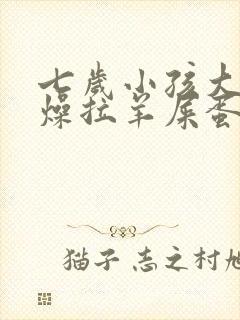 七岁小孩大
燥拉羊屎蛋
猫子 志之村旭